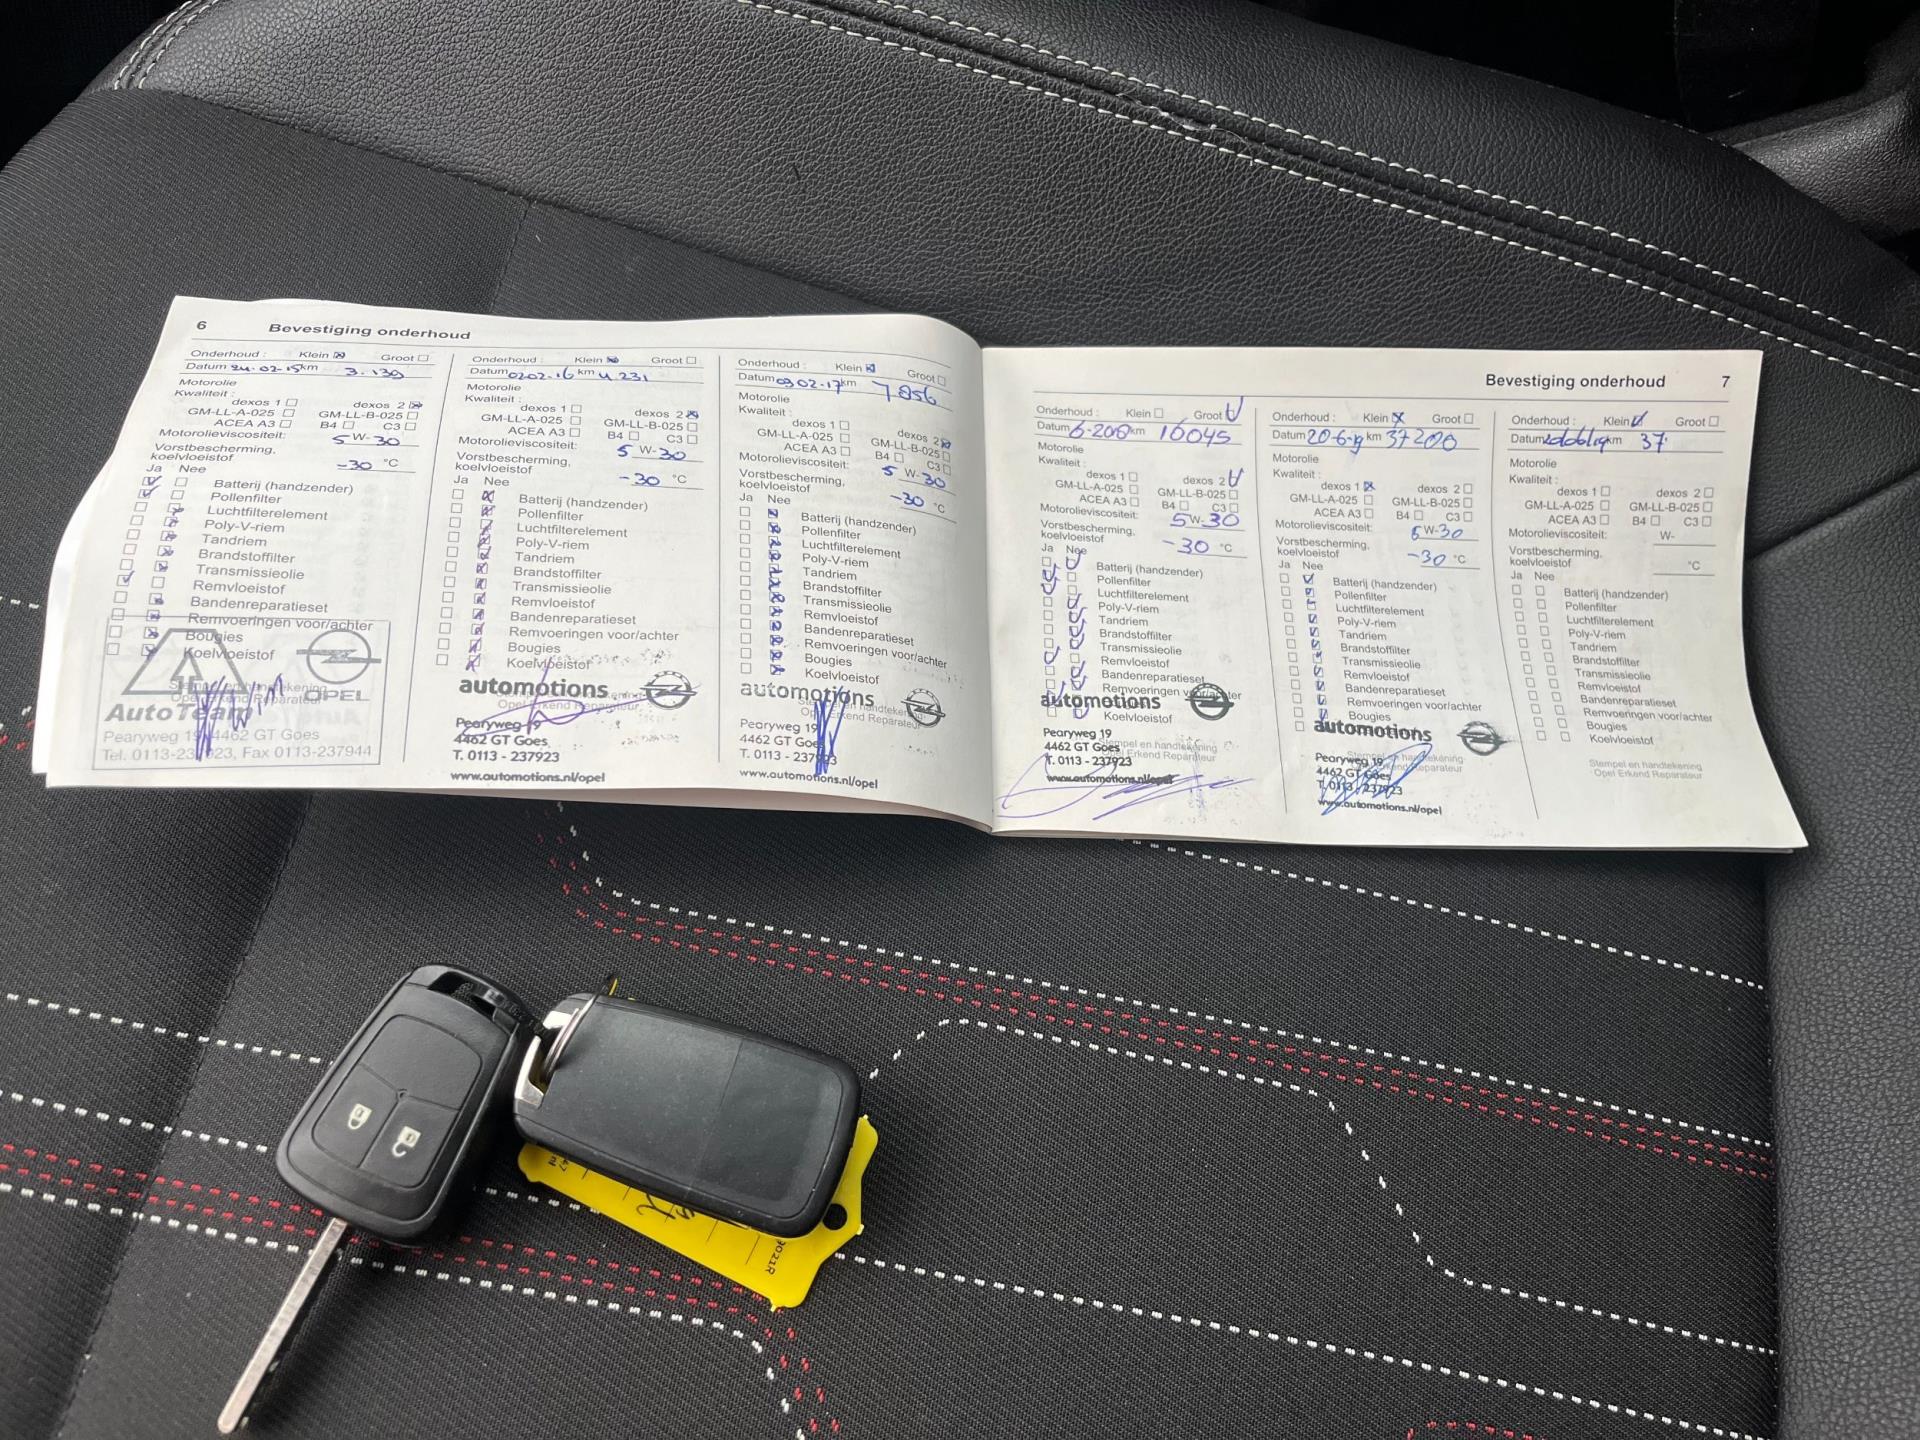 6 Bevestiging onderhoud
Onderhoud : Klein Groot
Datum 24-02-15 km 3.139
Motorolie
Kwaliteit :
dexos 1 dexos 2
GM-LL-A-025 GM-LL-B-025
ACEA A3 B4 C3
Motorolieviscositeit: 5 W-30
Vorstbescherming,
koelvloeistof -30 °C
Ja Nee
Batterij (handzender)
Pollenfilter
Luchtfilterelement
Poly-V-riem
Tandriem
Brandstoffilter
Transmissieolie
Remvloeistof
Bandenreparatieset
Remvoeringen voor/achter
Bougies
Koelvloeistof
Stempel en handtekening
Opel Erkend Reparateur
OPEL
AutoTeam
Pearyweg 19, 4462 GT Goes
Tel. 0113-237923, Fax 0113-237944
Onderhoud : Klein Groot
Datum 0202-16 km 4.231
Motorolie
Kwaliteit :
dexos 1 dexos 2
GM-LL-A-025 GM-LL-B-025
ACEA A3 B4 C3
Motorolieviscositeit: 5 W-30
Vorstbescherming,
koelvloeistof -30 °C
Ja Nee
Batterij (handzender)
Pollenfilter
Luchtfilterelement
Poly-V-riem
Tandriem
Brandstoffilter
Transmissieolie
Remvloeistof
Bandenreparatieset
Remvoeringen voor/achter
Bougies
Koelvloeistof
automotions
Pearyweg 19
4462 GT Goes
T. 0113 - 237923
www.automotions.nl/opel
Onderhoud : Klein Groot
Datum 09 02-17 km 7856
Motorolie
Kwaliteit :
dexos 1 dexos 2
GM-LL-A-025 GM-LL-B-025
ACEA A3 B4 C3
Motorolieviscositeit: 5 W-30
Vorstbescherming,
koelvloeistof -30 °C
Ja Nee
Batterij (handzender)
Pollenfilter
Luchtfilterelement
Poly-V-riem
Tandriem
Brandstoffilter
Transmissieolie
Remvloeistof
Bandenreparatieset
Remvoeringen voor/achter
Bougies
Koelvloeistof
automotions
Stempel en handtekening
Opel Erkend Reparateur
Pearyweg 19
4462 GT Goes
T. 0113 - 237923
www.automotions.nl/opel
Bevestiging onderhoud 7
Onderhoud : Klein Groot
Datum km 16045
Motorolie
Kwaliteit :
dexos 1 dexos 2
GM-LL-A-025 GM-LL-B-025
ACEA A3 B4 C3
Motorolieviscositeit: 5 W-30
Vorstbescherming,
koelvloeistof -30 °C
Ja Nee
Batterij (handzender)
Pollenfilter
Luchtfilterelement
Poly-V-riem
Tandriem
Brandstoffilter
Transmissieolie
Remvloeistof
Bandenreparatieset
Remvoeringen voor/achter
Koelvloeistof
automotions
Pearyweg 19
4462 GT Goes
T. 0113 - 237923
Stempel en handtekening
Opel Erkend Reparateur
www.automotions.nl/opel
Onderhoud : Klein Groot
Datum 20-6-19 km 37200
Motorolie
Kwaliteit :
dexos 1 dexos 2
GM-LL-A-025 GM-LL-B-025
ACEA A3 B4 C3
Motorolieviscositeit: 5 W-30
Vorstbescherming,
koelvloeistof -30 °C
Ja Nee
Batterij (handzender)
Pollenfilter
Luchtfilterelement
Poly-V-riem
Tandriem
Brandstoffilter
Transmissieolie
Remvloeistof
Bandenreparatieset
Remvoeringen voor/achter
Bougies
automotions
Stempel en handtekening
Opel Erkend Reparateur
Pearyweg 19
4462 GT Goes
T. 0113 - 237923
www.automotions.nl/opel
Onderhoud : Klein Groot
Datum km 37
Motorolie
Kwaliteit :
dexos 1 dexos 2
GM-LL-A-025 GM-LL-B-025
ACEA A3 B4 C3
Motorolieviscositeit: W-
Vorstbescherming,
koelvloeistof °C
Ja Nee
Batterij (handzender)
Pollenfilter
Luchtfilterelement
Poly-V-riem
Tandriem
Brandstoffilter
Transmissieolie
Remvloeistof
Bandenreparatieset
Remvoeringen voor/achter
Bougies
Koelvloeistof
Stempel en handtekening
Opel Erkend Reparateur
9021R